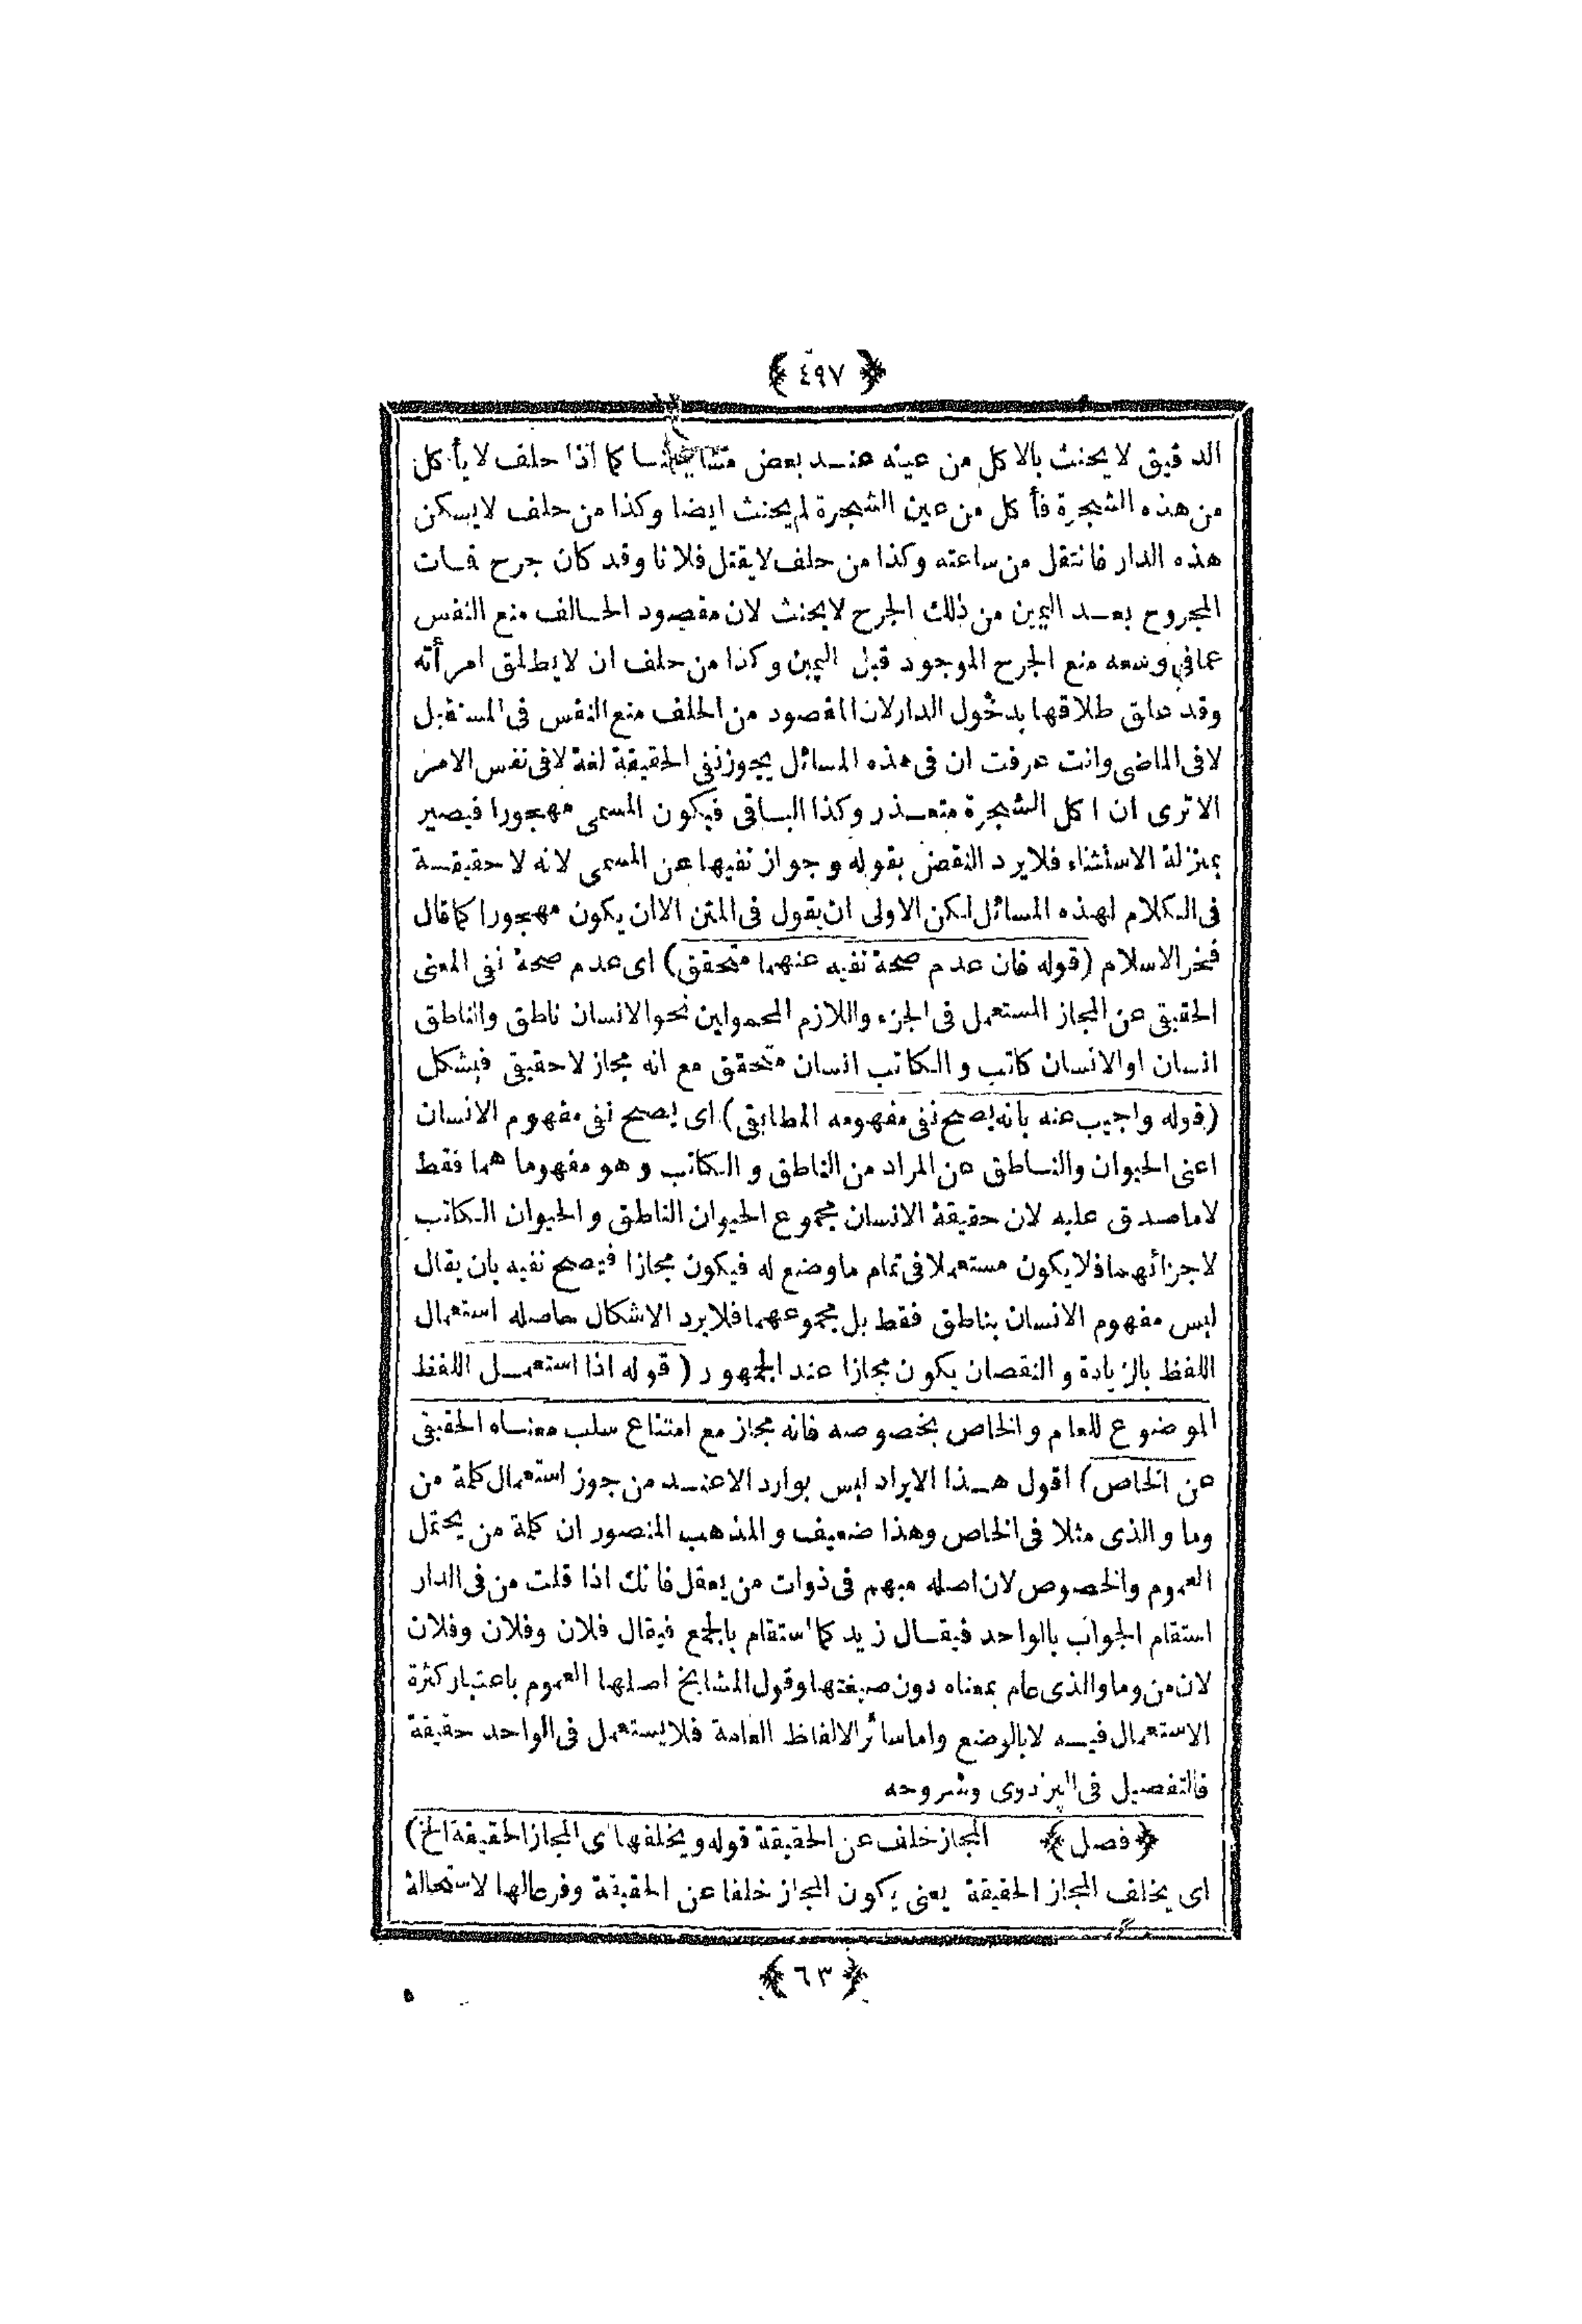 ﴿ ٤٩٧ ﴾
الدقيق لا يحنث بالاكل من عينه عنـد بعض مشايخنـا كما اذا حلف لا يأكل
من هذه الشجرة فأكل من عين الشجرة لم يحنث ايضا وكذا من حلف لا يسكن
هذه الدار فانتقل من ساعته وكذا من حلف لا يقتل فلانا وقد كان جرح فمات
المجروح بعـد اليمين من ذلك الجرح لا يحنث لان مقصود الحـالف منع النفس
عما في وسعه منع الجرح الموجود قبل اليمين وكذا من حلف ان لا يطلق امرأته
وقد علق طلاقها بدخول الدار لان المقصود من الحلف منع النفس فى المستقبل
لا فى الماضى وانت عرفت ان فى هذه المسائل يجوز نفى الحقيقة لغة لا فى نفس الامر
الا ترى ان اكل الشجرة متعـذر وكذا البـاقى فيكون المسمى مهجورا فيصير
بمنزلة الاستثناء فلا يرد النقض بقوله وجواز نفيها عن المسمى لانه لا حقيقـة
فى الكلام لهذه المسائل لكن الاولى ان يقول فى المتن الا ان يكون مهجورا كما قال
فخر الاسلام (قوله فان عدم صحة نفيه عنهما متحقق) اى عدم صحة نفى المعنى
الحقيقى عن المجاز المستعمل فى الجزء واللازم المحمولين نحو الانسان ناطق والناطق
انسان او الانسان كاتب والكاتب انسان متحقق مع انه مجاز لا حقيقى فيشكل
(قوله واجيب عنه بانه يصح نفى مفهومه المطابقى) اى يصح نفى مفهوم الانسان
اعنى الحيوان والنـاطق عن المراد من الناطق والكاتب وهو مفهوما هما فقط
لا ما صدق عليه لان حقيقة الانسان مجموع الحيوان الناطق والحيوان الكاتب
لا جزائهما فلا يكون مستعملا فى تمام ما وضع له فيكون مجازا فيصح نفيه بان يقال
ليس مفهوم الانسان بناطق فقط بل مجموعهما فلا يرد الاشكال حاصله استعمال
اللفظ بالزيادة والنقصان يكون مجازا عند الجمهور (قوله اذا استعمـل اللفظ
الموضوع للعام والخاص بخصوصه فانه مجاز مع امتناع سلب معنـاه الحقيقى
عن الخاص) اقول هـذا الايراد ليس بوارد الا عنـد من جوز استعمال كلمة من
وما والذى مثلا فى الخاص وهذا ضعيف والمذهب المنصور ان كلمة من يحتمل
العموم والخصوص لان اصله مبهم فى ذوات من يعقل فانك اذا قلت من فى الدار
استقام الجواب بالواحد فيقـال زيد كما استقام بالجمع فيقال فلان وفلان وفلان
لان من وما والذى عام بمعناه دون صيغتها وقول المشايخ اصلها العموم باعتبار كثرة
الاستعمال فيـه لا بالوضع واما سائر الالفاظ العامة فلا يستعمل فى الواحد حقيقة
فالتفصيل فى البزدوى وشروحه
﴿ فصل ﴾ المجاز خلف عن الحقيقة قوله ويخلفها اى المجاز الحقيقة الخ)
اى يخلف المجاز الحقيقة يعنى يكون المجاز خلفا عن الحقيقة وفرعا لها لاستحالة
﴿ ٦٣ ﴾